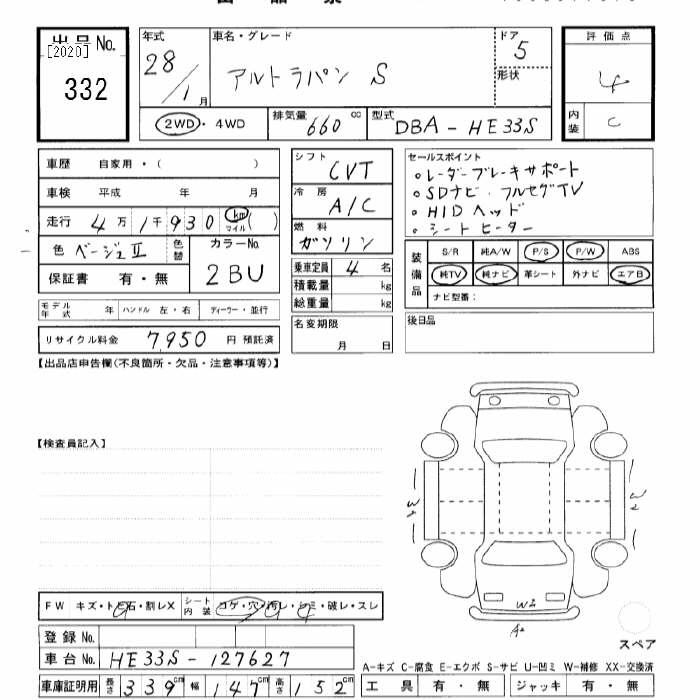 出品No. [2020] 332
年式 28/1月
車名・グレード アルトラパン S
ドア 5
形状
評価点 4
内装 C
2WD・4WD
排気量 660 cc
型式 DBA-HE33S
車歴 自家用・( )
車検 平成 年 月
走行 4万1千930 km マイル ( )
色 ベージュII
色替
カラーNo. 2BU
保証書 有・無
モデル年式 年 ハンドル 左・右 ディーラー・並行
リサイクル料金 7,950 円 預託済
シフト CVT
冷房 A/C
燃料 ガソリン
乗車定員 4 名
積載量 kg
総重量 kg
名変期限 月 日
セールスポイント
。レーダーブレーキサポート
。SDナビ・フルセグTV
。HIDヘッド
。シートヒーター
装備品
S/R 純A/W P/S P/W ABS
純TV 純ナビ 革シート 外ナビ エアB
ナビ型番:
後日品
【出品店申告欄(不良箇所・欠品・注意事項等)】
【検査員記入】
W2
W2
W2
A2
スペア
FW キズ・トビ石・割レX
シート内装 コゲ・穴・汚レ・シミ・破レ・スレ
登録No.
車台No. HE33S-127627
車庫証明用 長さ 339cm 幅 147cm 高さ 152cm
A-キズ C-腐食 E-エクボ S-サビ U-凹ミ W-補修 XX-交換済
工具 有・無 ジャッキ 有・無